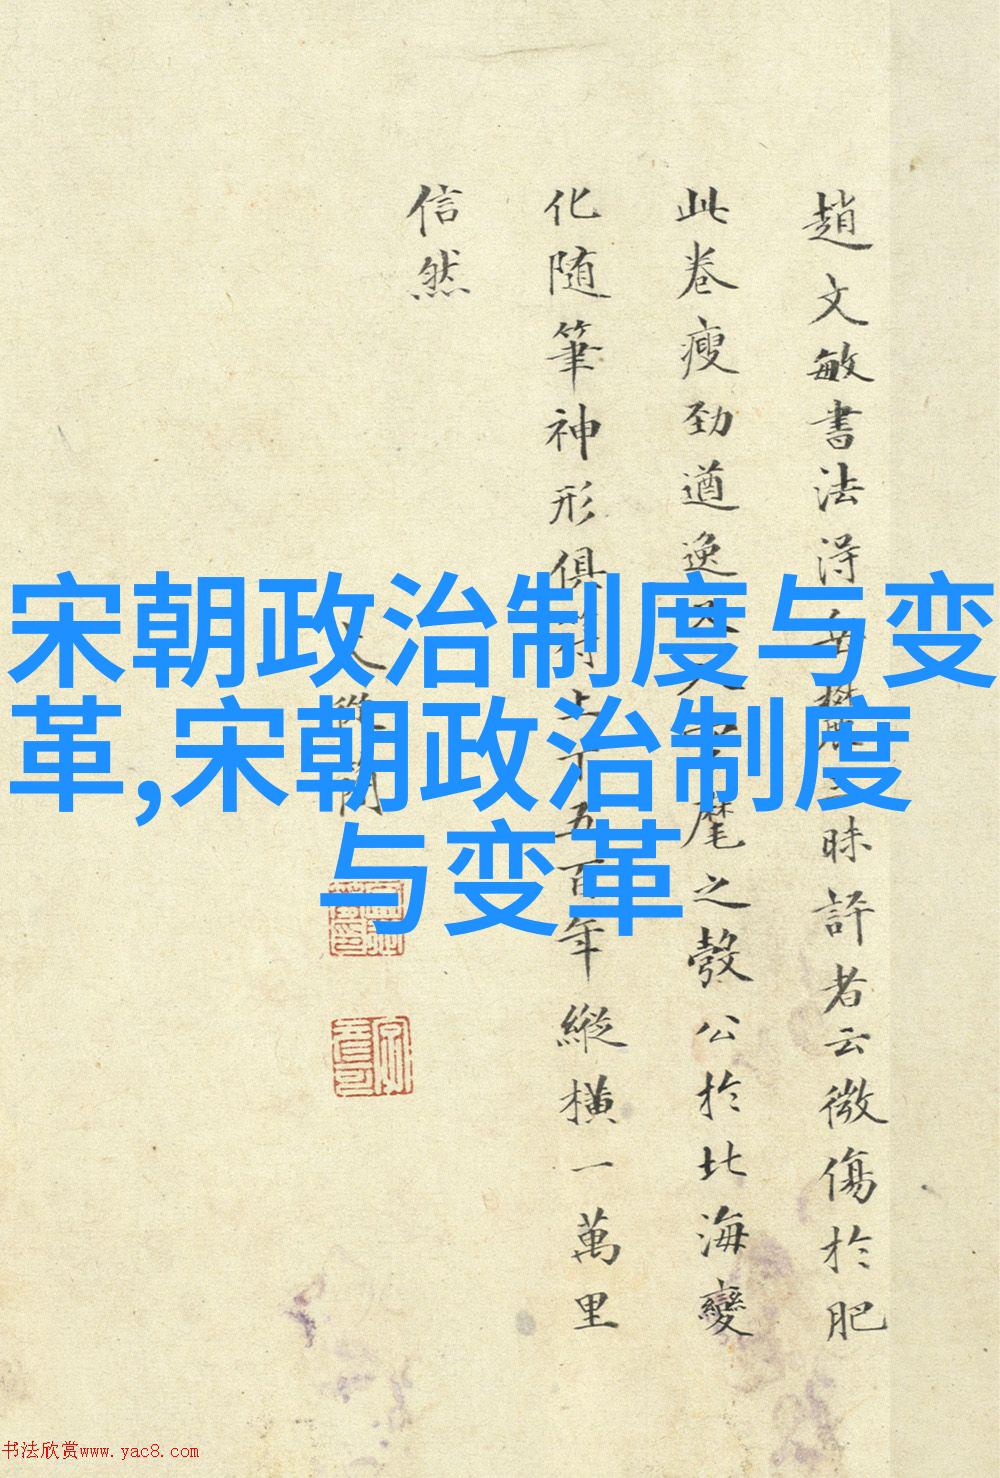 宋朝政治制度与变
革,宋朝政治制度
与变革
趙文敏書法得
昧評者云微傷於肥
此卷瘦勁遒逸
麾之彀公於北海變
化隨筆神形俱
上下五百年縱橫一萬里
信然
书法欣赏www.yac8.com